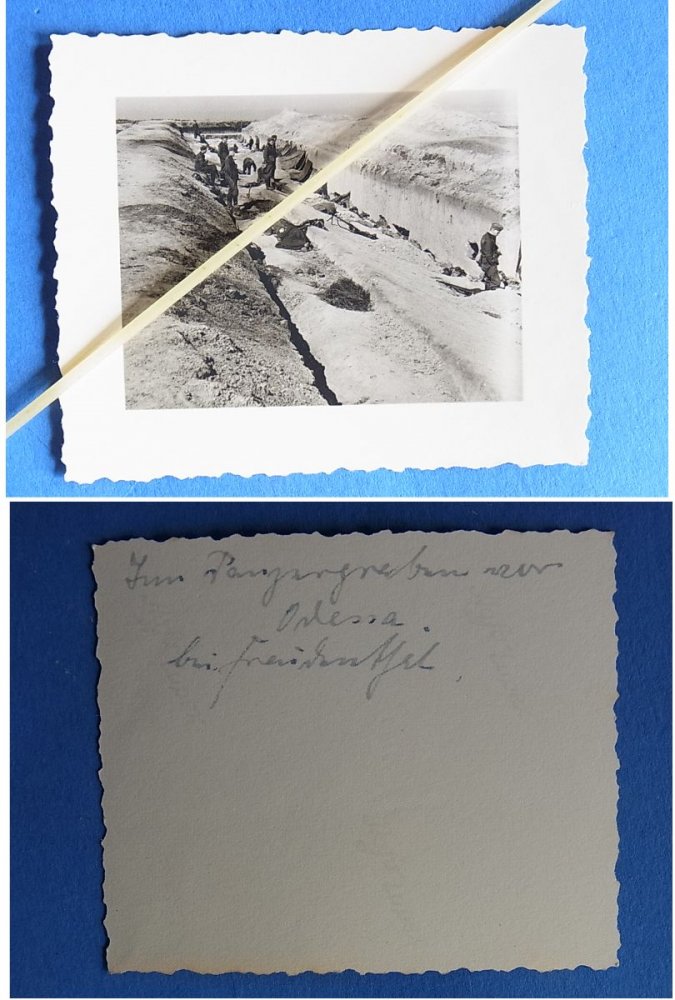 Im Panzergraben vor
Odessa.
bei Freudenthal